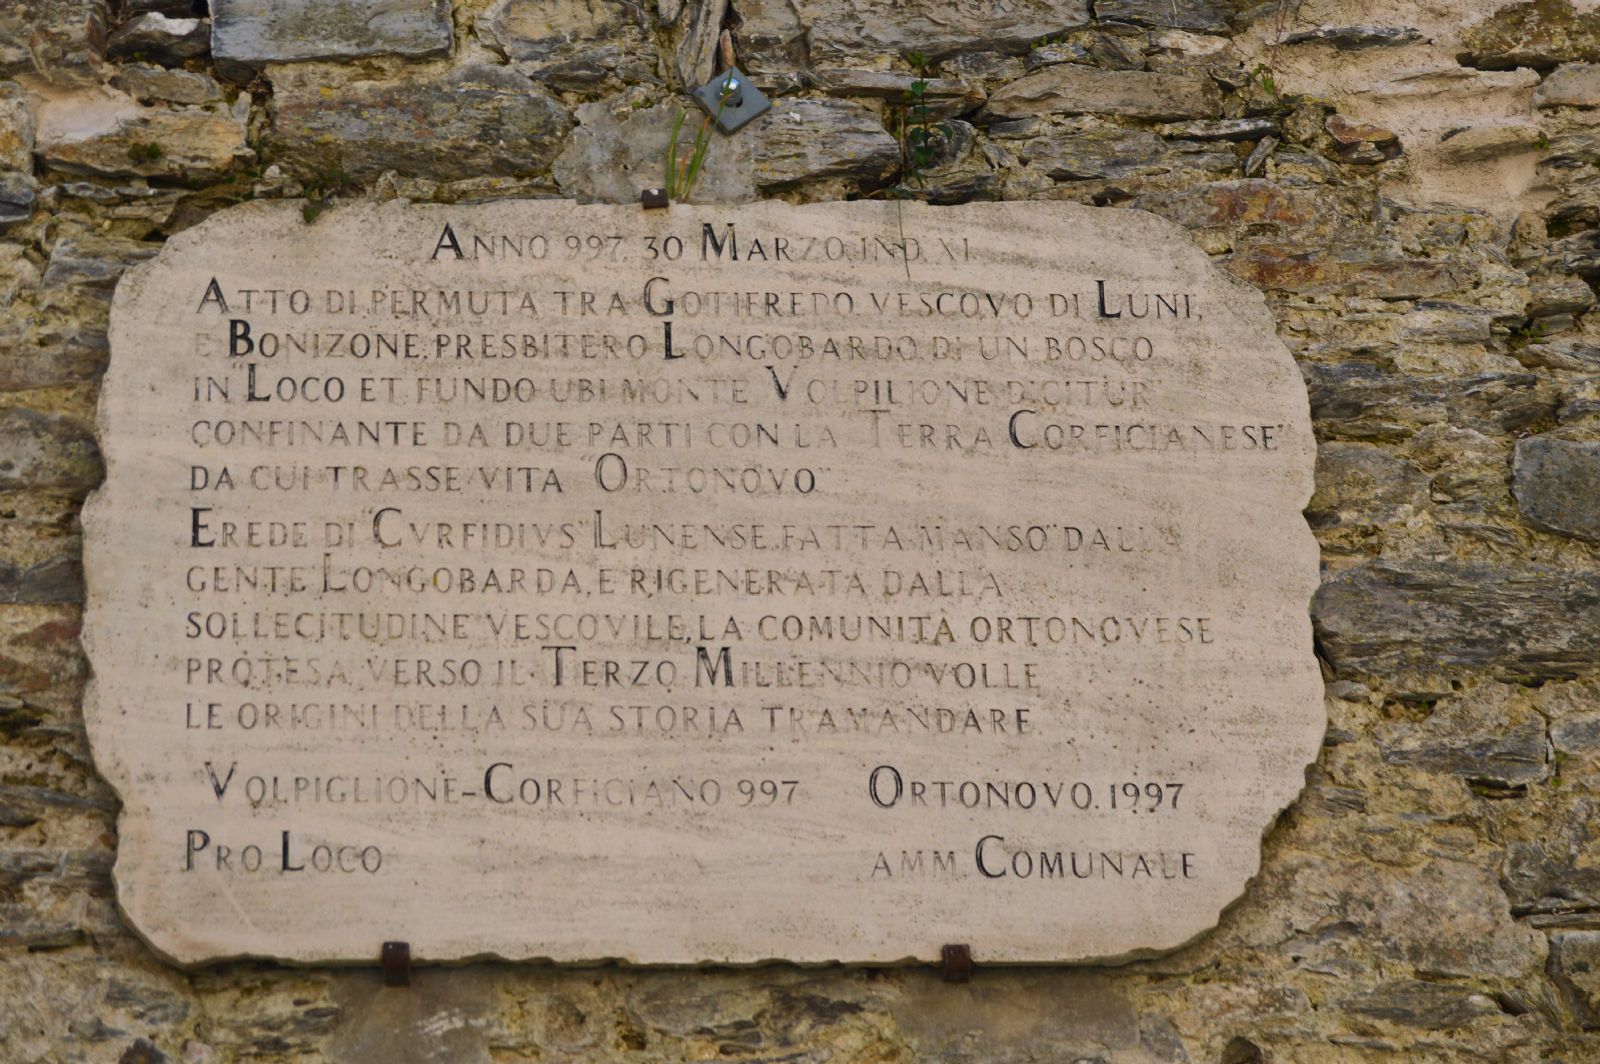 ANNO 997. 30 MARZO. IND. XI.
ATTO DI PERMUTA TRA GOTIFREDO. VESCOVO DI LUNI,
E BONIZONE. PRESBITERO LONGOBARDO. DI UN BOSCO
IN "LOCO ET FUNDO UBI MONTE VOLPILIONE DICITUR"
CONFINANTE DA DUE PARTI CON LA "TERRA CORFICIANESE"
DA CUI TRASSE VITA "ORTONOVO"
EREDE DI "CVRFIDIVS" LUNENSE. FATTA "MANSO" DALLA
GENTE LONGOBARDA, E RIGENERATA DALLA
SOLLECITUDINE VESCOVILE, LA COMUNITÀ ORTONOVESE
PROTESA VERSO IL TERZO MILLENNIO VOLLE
LE ORIGINI DELLA SUA STORIA TRAMANDARE.
VOLPIGLIONE-CORFICIANO 997 ORTONOVO. 1997
PRO LOCO AMM. COMUNALE